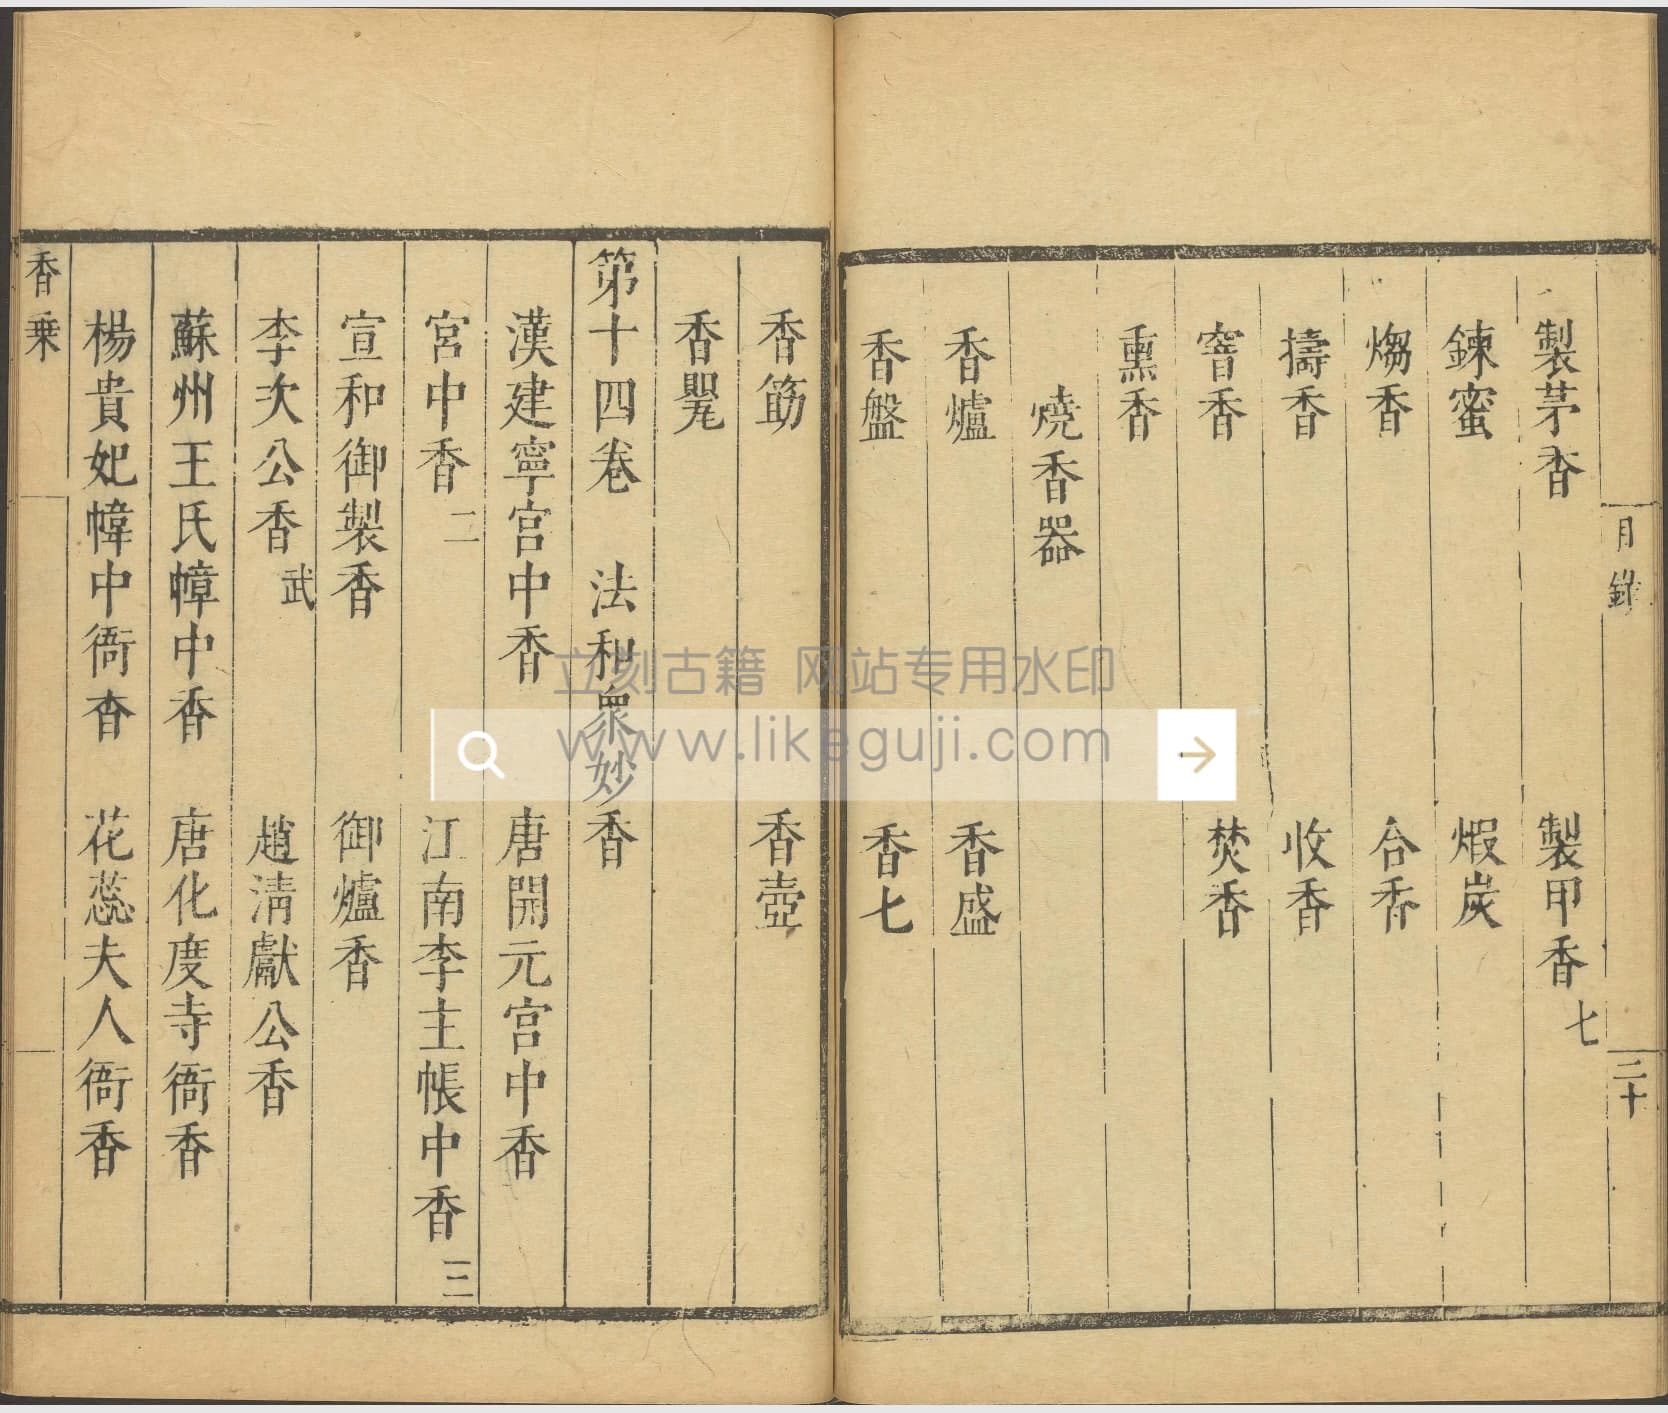 目錄 二十
製茅香 製甲香 七
鍊蜜 煆炭
煼香 合香
擣香 收香
窨香 焚香
熏香
燒香器
香爐 香盛
香盤 香匕
香筯 香壺
香罌
第十四卷 法和衆妙香
漢建寧宮中香 唐開元宮中香
宮中香 二 江南李主帳中香 三
宣和御製香 御爐香
李次公香 武 趙清獻公香
蘇州王氏幃中香 唐化度寺衙香
楊貴妃幃中衙香 花蕊夫人衙香
香乗
立刻古籍 网站专用水印
www.likeguji.com